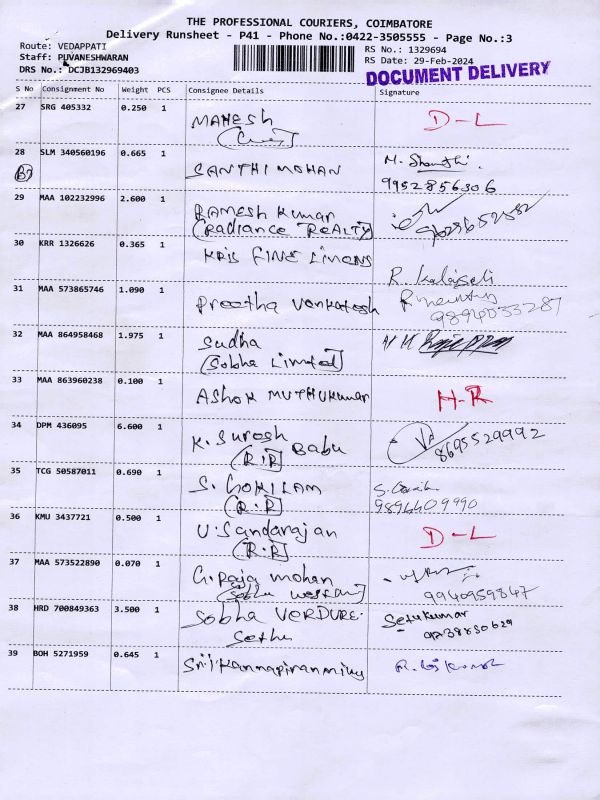 THE PROFESSIONAL COURIERS, COIMBATORE
Delivery Runsheet - P41 - Phone No.:0422-3505555 - Page No.:3
Route: VEDAPPATI
RS No.: 1329694
Staff: PUVANESHWARAN
RS Date: 29-Feb-2024
DRS No.: DCJB132969403
DOCUMENT DELIVERY
S No Consignment No Weight PCS Consignee Details Signature
27 SRG 405332 0.250 1 MAHESH D-L
28 SLM 340560196 0.665 1 SANTHI MOHAN M. Shanthi.
9952856306
29 MAA 102232996 2.600 1 RAMESH KUMAR
(Radiance REALTY)
30 KRR 1326626 0.365 1 KRIS FINE
R. Kalaiseli
31 MAA 573865746 1.090 1 Preetha Venkatesh
32 MAA 864958468 1.975 1 Sudha
(Sobha Limited)
33 MAA 863960238 0.100 1 ASHOK MUTHUKUMAR H-R
34 DPM 436095 6.600 1 K. Suresh Babu
(R.R) 8695529992
35 TCG 50587011 0.690 1 S. GOKILAM
(R.R) 9894409990
36 KMU 3437721 0.500 1 U. Sandarajan D-L
(R.R)
37 MAA 573522890 0.070 1 G. Raja mohan
9940959847
38 HRD 700849363 3.500 1 Sobha VERDURE. Setukumar
Sethu
39 BOH 5271959 0.645 1